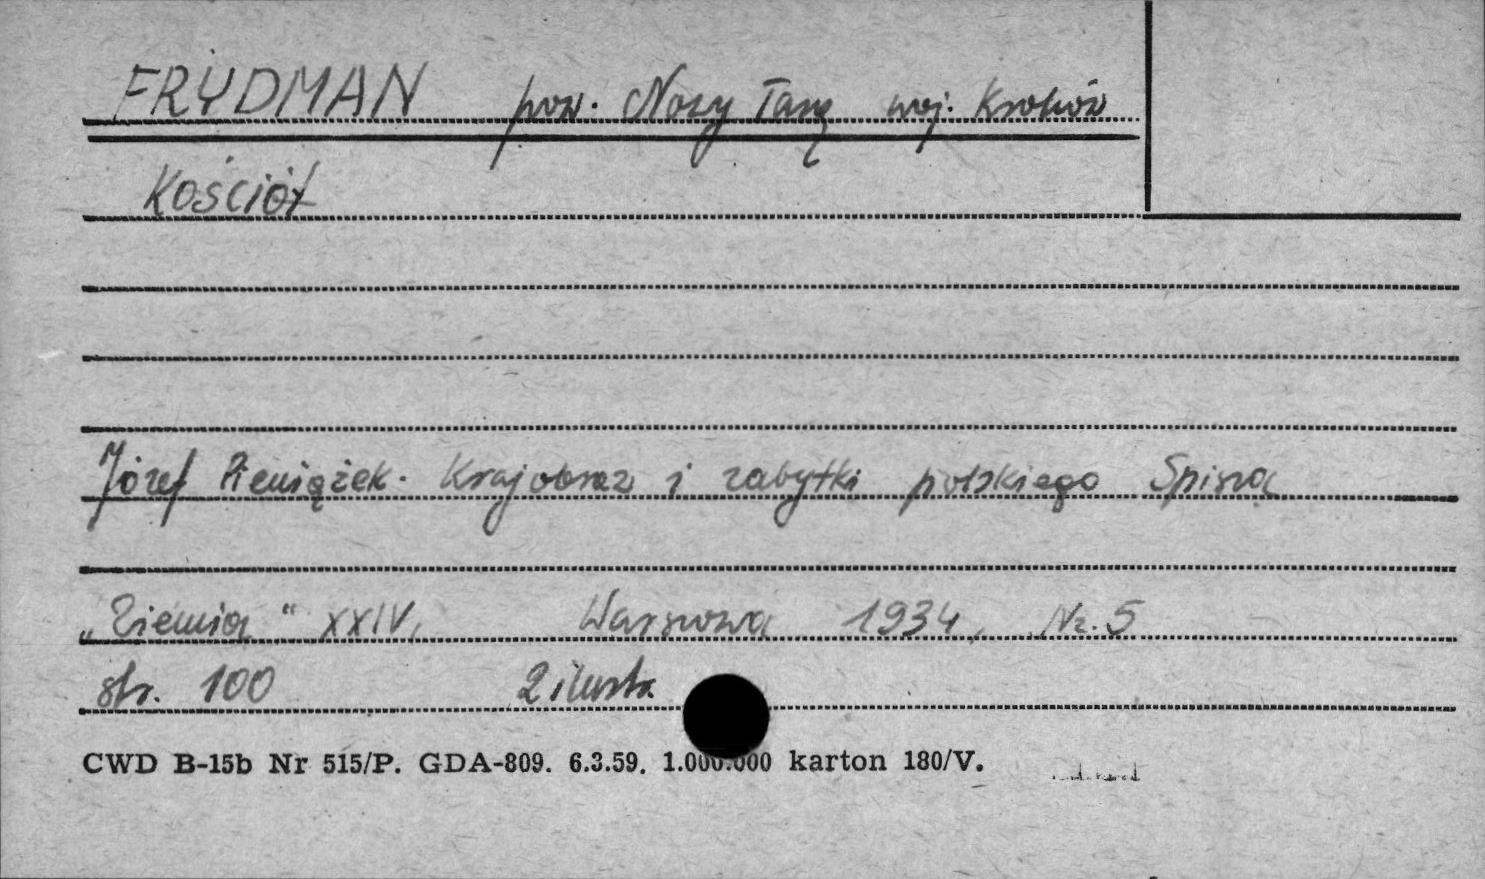 FRYDMAN pow. Nowy Targ woj. Kraków
Kościół
Józef Pieniążek. Krajobraz i zabytki polskiego Spisza
„Ziemia" XXIV, Warszawa 1934, Nr. 5
str. 100 2 ilustr.
CWD B-15b Nr 515/P. GDA-809. 6.3.59. 1.000.000 karton 180/V.